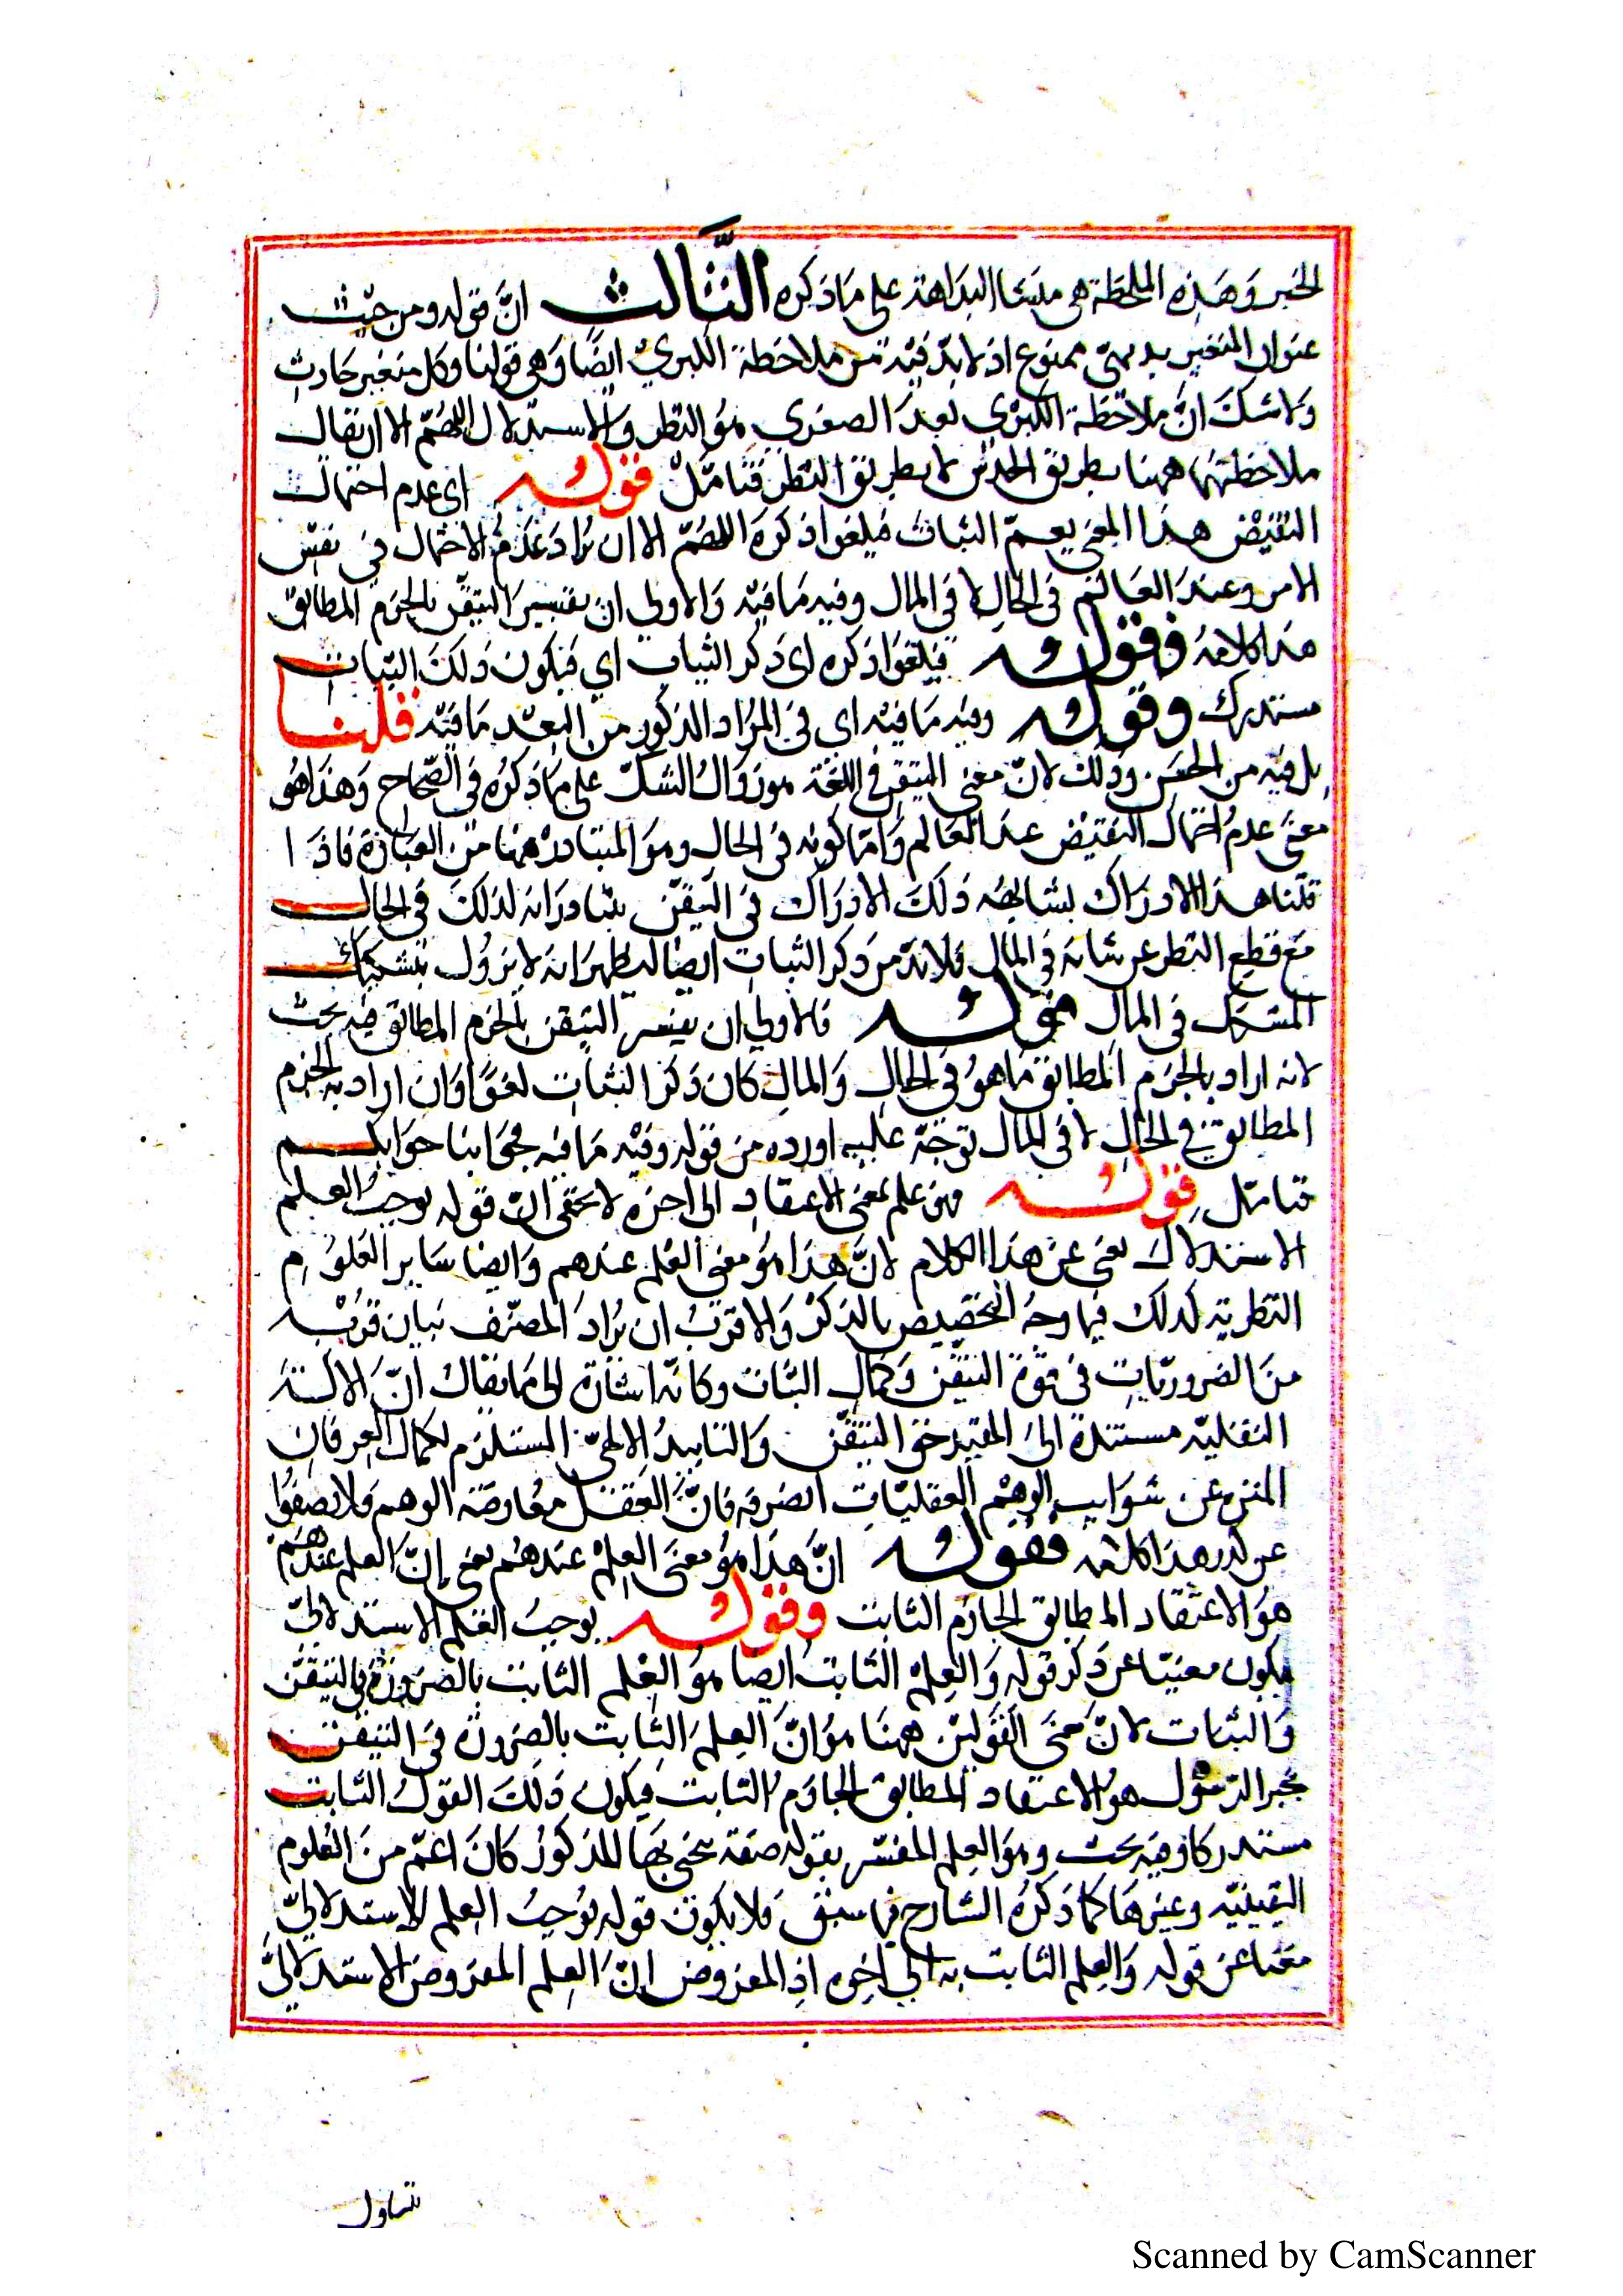 الخبر وهذه الملاحظة هي منشأ البداهة على ما ذكره الثالث ان قوله ومن حيث
عنوان المتغير بديهى ممنوع اذ لا بد فيه من ملاحظة الكبرى ايضا وهي قولنا وكل متغير حادث
ولا شك ان ملاحظة الكبرى بعد الصغرى هو النظر والاستدلال اللهم الا ان يقال
ملاحظتهما ههنا بطريق الحدس لا بطريق النظر فتامل قوله اى عدم احتمال
النقيض هذا المعنى يعم الثبات فيلغو اذكره اللهم الا ان يراد عدم الاحتمال في نفس
الامر وعند العالم في الحال لا في المال وفيه ما فيه والاولى ان يفسر التيقن بالجزم المطابق
هذا كلامه فقوله فيلغوا ذكره اى ذكر الثبات اي فيكون ذلك الثبات
مستدرك وقوله وفيه ما فيه اي في المراد المذكور من البعد ما فيه قلنا
بل فيه من الحسن وذلك لان معنى التيقن في اللغة هو زوال الشك على ما ذكره في الصحاح وهذا هو
معنى عدم احتمال النقيض عند العالم واما كونه في الحال وهو المتبادر ههنا من العبارة فاذا
قلنا هذا الادراك يشابهه ذلك الادراك في التيقن يتبادر انه لذلك في الحال
مع قطع النظر عن شانه في المال فلا بد من ذكر الثبات ايضا ليظهر انه لا يزول بتشكيك
المشكك في المال قوله فالاولى ان يفسر التيقن بالجزم المطابق فيه بحث
لانه اراد بالجزم المطابق ما هو في الحال والمال كان ذكر الثبات لغوا وان اراد به الجزم
المطابق في الحال لا في المال توجه عليه اورده من قوله وفيه ما فيه فجوابنا جوابكم
فتامل قوله فهو علم بمعنى الاعتقاد الى اخره لا يخفى ان قوله يوجب العلم
الاستدلال يغنى عن هذا الكلام لان هذا هو معنى العلم عندهم وايضا ساير العلوم
النظرية كذلك فما وجه التخصيص بالذكر والاقرب ان يراد المصنف بيان قربه
من الضروريات في قوة التيقن وكمال الثبات وكانه اشارة الى ما يقال ان الادلة
النقلية مستندة الى المقيد حق التيقن والتاييد الالهى المستلزم لكمال العرفان
المنزه عن شوايب الوهم العقليات الصرفه فان العقل معارضة الوهم فلا يصفوا
عن كدر هذا كلامه فقوله ان هذا هو معنى العلم عندهم يعني ان العلم عندهم
هو الاعتقاد المطابق الجازم الثابت وقوله يوجب العلم الاستدلالى
يكون مغنيا عن ذكر قوله والعلم الثابت ايضا هو العلم الثابت بالضرورة في التيقن
والثبات لان معنى القولين ههنا هو ان العلم الثابت بالضرورة في التيقن
بخبر الرسول هو الاعتقاد المطابق الجازم الثابت فيكون ذلك القول الثابت
مستدركا وفيه بحث وهو العلم المفسر بقوله صفة يتجلى بها المذكور كان اعم من العلوم
اليقينيه وغيرها كما ذكره الشارح فيما سبق فلا يكون قوله يوجب العلم الاستدلالي
مغنيا عن قوله والعلم الثابت به الى اخره اذ المفروض ان العلم المفروض الاستدلالى
تناول
Scanned by CamScanner